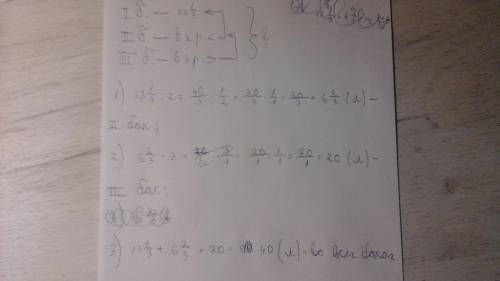 I б. — 13 1/3
II б. — в 2 р. <
III б. — в 3 р. >
?
1) 13 1/3 : 2 = 40/3 · 1/2 = 20/3 · 1/1 = 20/3 = 6 2/3 (л) –
II бак;
2) 6 2/3 · 3 = 20/3 · 3/1 = 20/1 · 1/1 = 20/1 = 20 (л) –
III бак;
3) 13 1/3 + 6 2/3 + 20 = 40 (л) – во всех баках